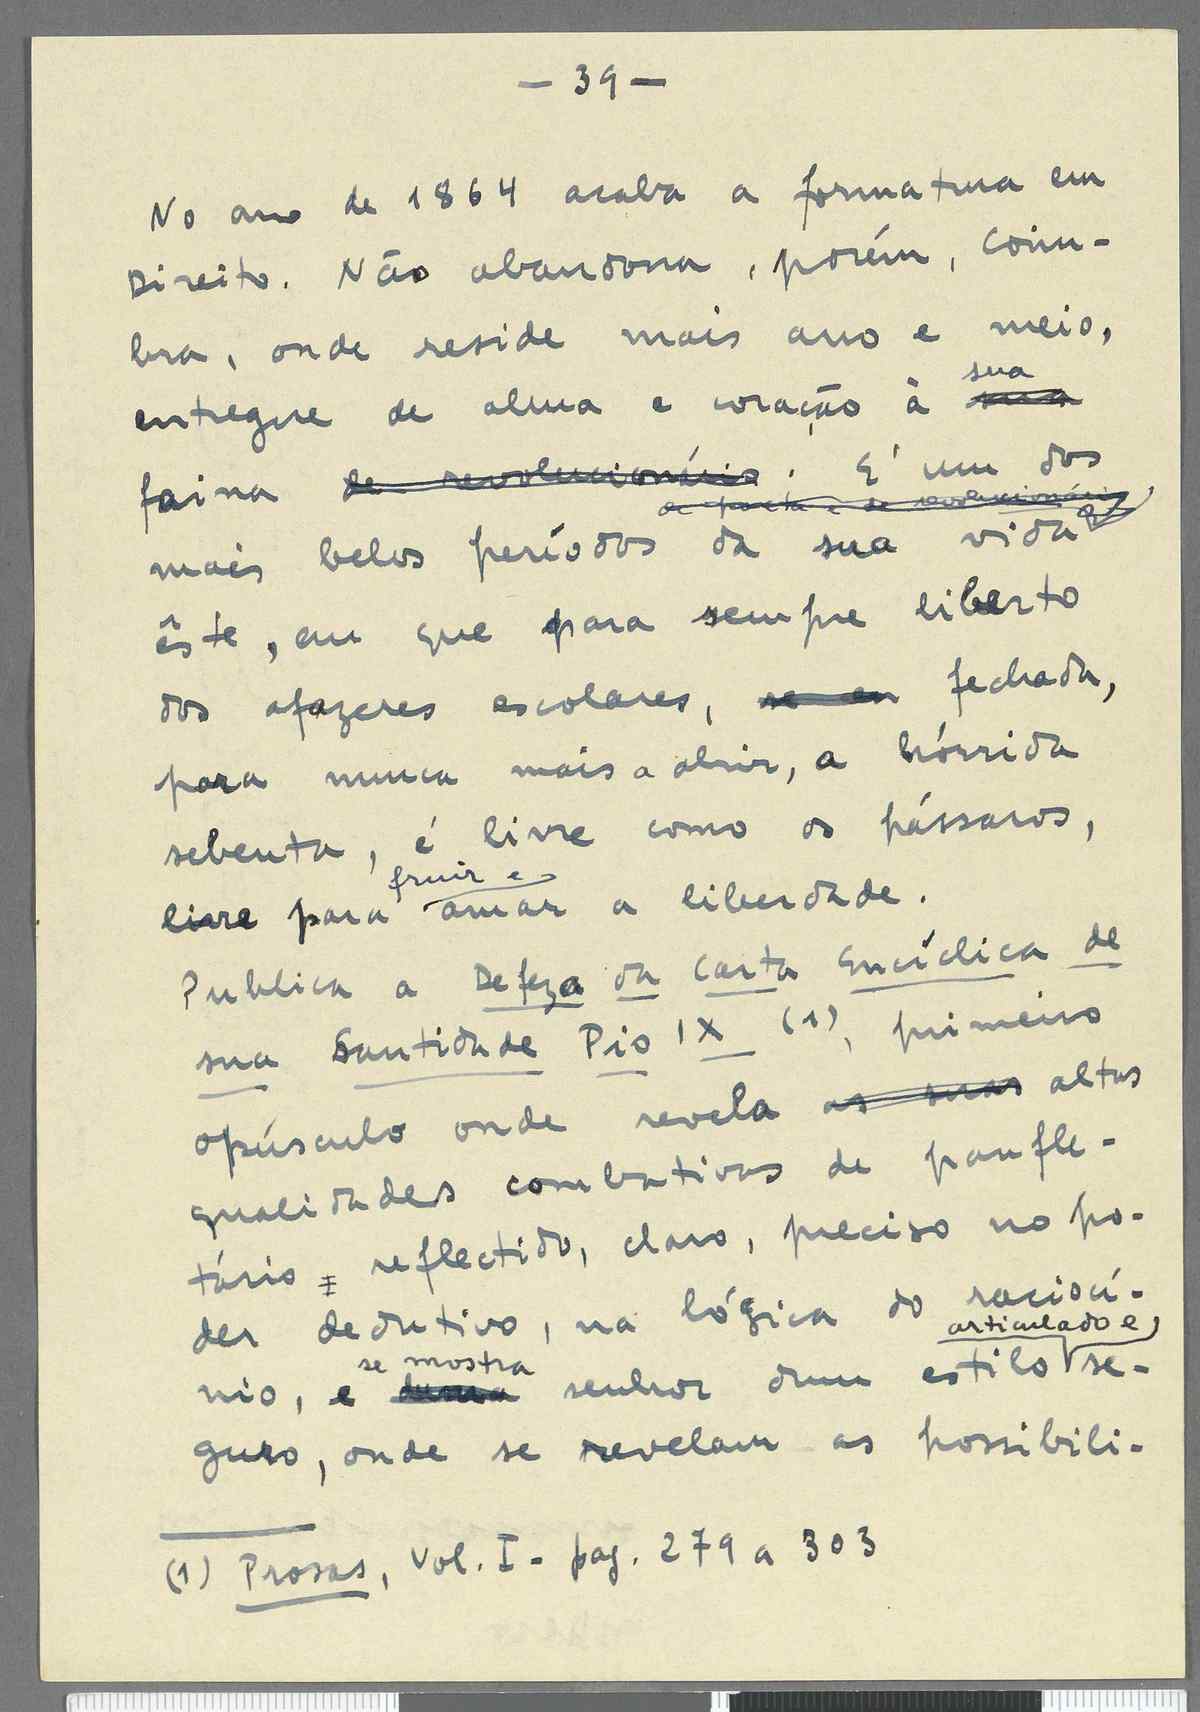 — 39 —
No ano de 1864 acaba a formatura em
Direito. Não abandona, porém, Coim-
bra, onde reside mais ano e meio,
sua
entregue de alma e coração à sua
faina de revolucionário. E' um dos
de poeta e de revolucionário
mais belos períodos da sua vida
êste, em que para sempre liberto
dos afazeres escolares, se em fechada,
para nunca mais a abrir, a hórrida
sebenta, é livre como os pássaros,
fruir e
livre para amar a liberdade.
Publica a Defeza da Carta Encíclica de
sua Santidade Pio IX (1), primeiro
opúsculo onde revela as suas altas
qualidades combativas de panfle-
tário = reflectido, claro, preciso no po-
der dedutivo, na lógica do raciocí-
articulado e
nio, e senhor dum estilo se-
se mostra
guro, onde se revelam as possibili-
(1) Prosas, Vol. I - pag. 279 a 303